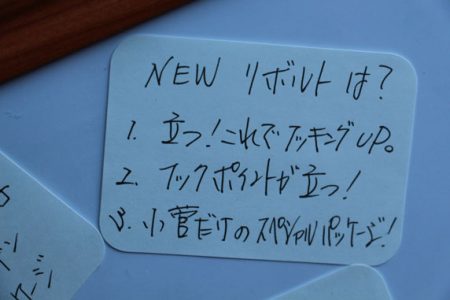 NEW リボルトは?
1. 立つ!これでフッキングUP。
2. フックポイントが立つ!
3. 小菅だけのスペシャルパッケージ!